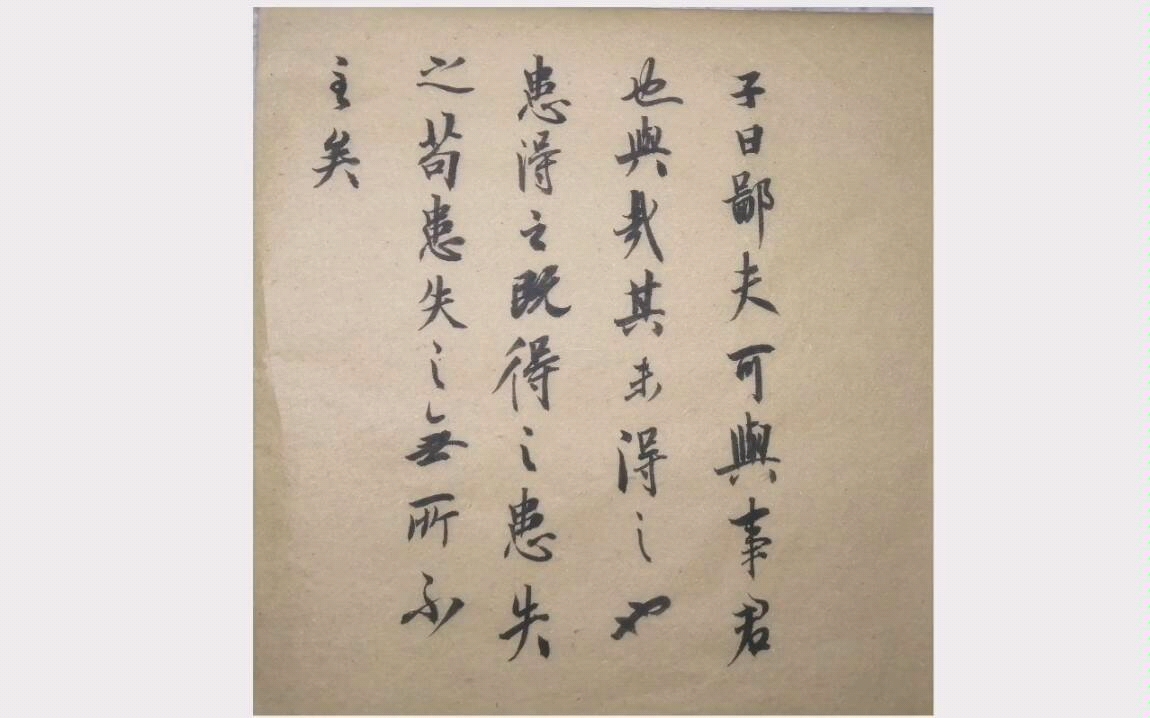 子曰鄙夫可與事君
也與哉其未得之也
患得之既得之患失
之苟患失之無所不
至矣